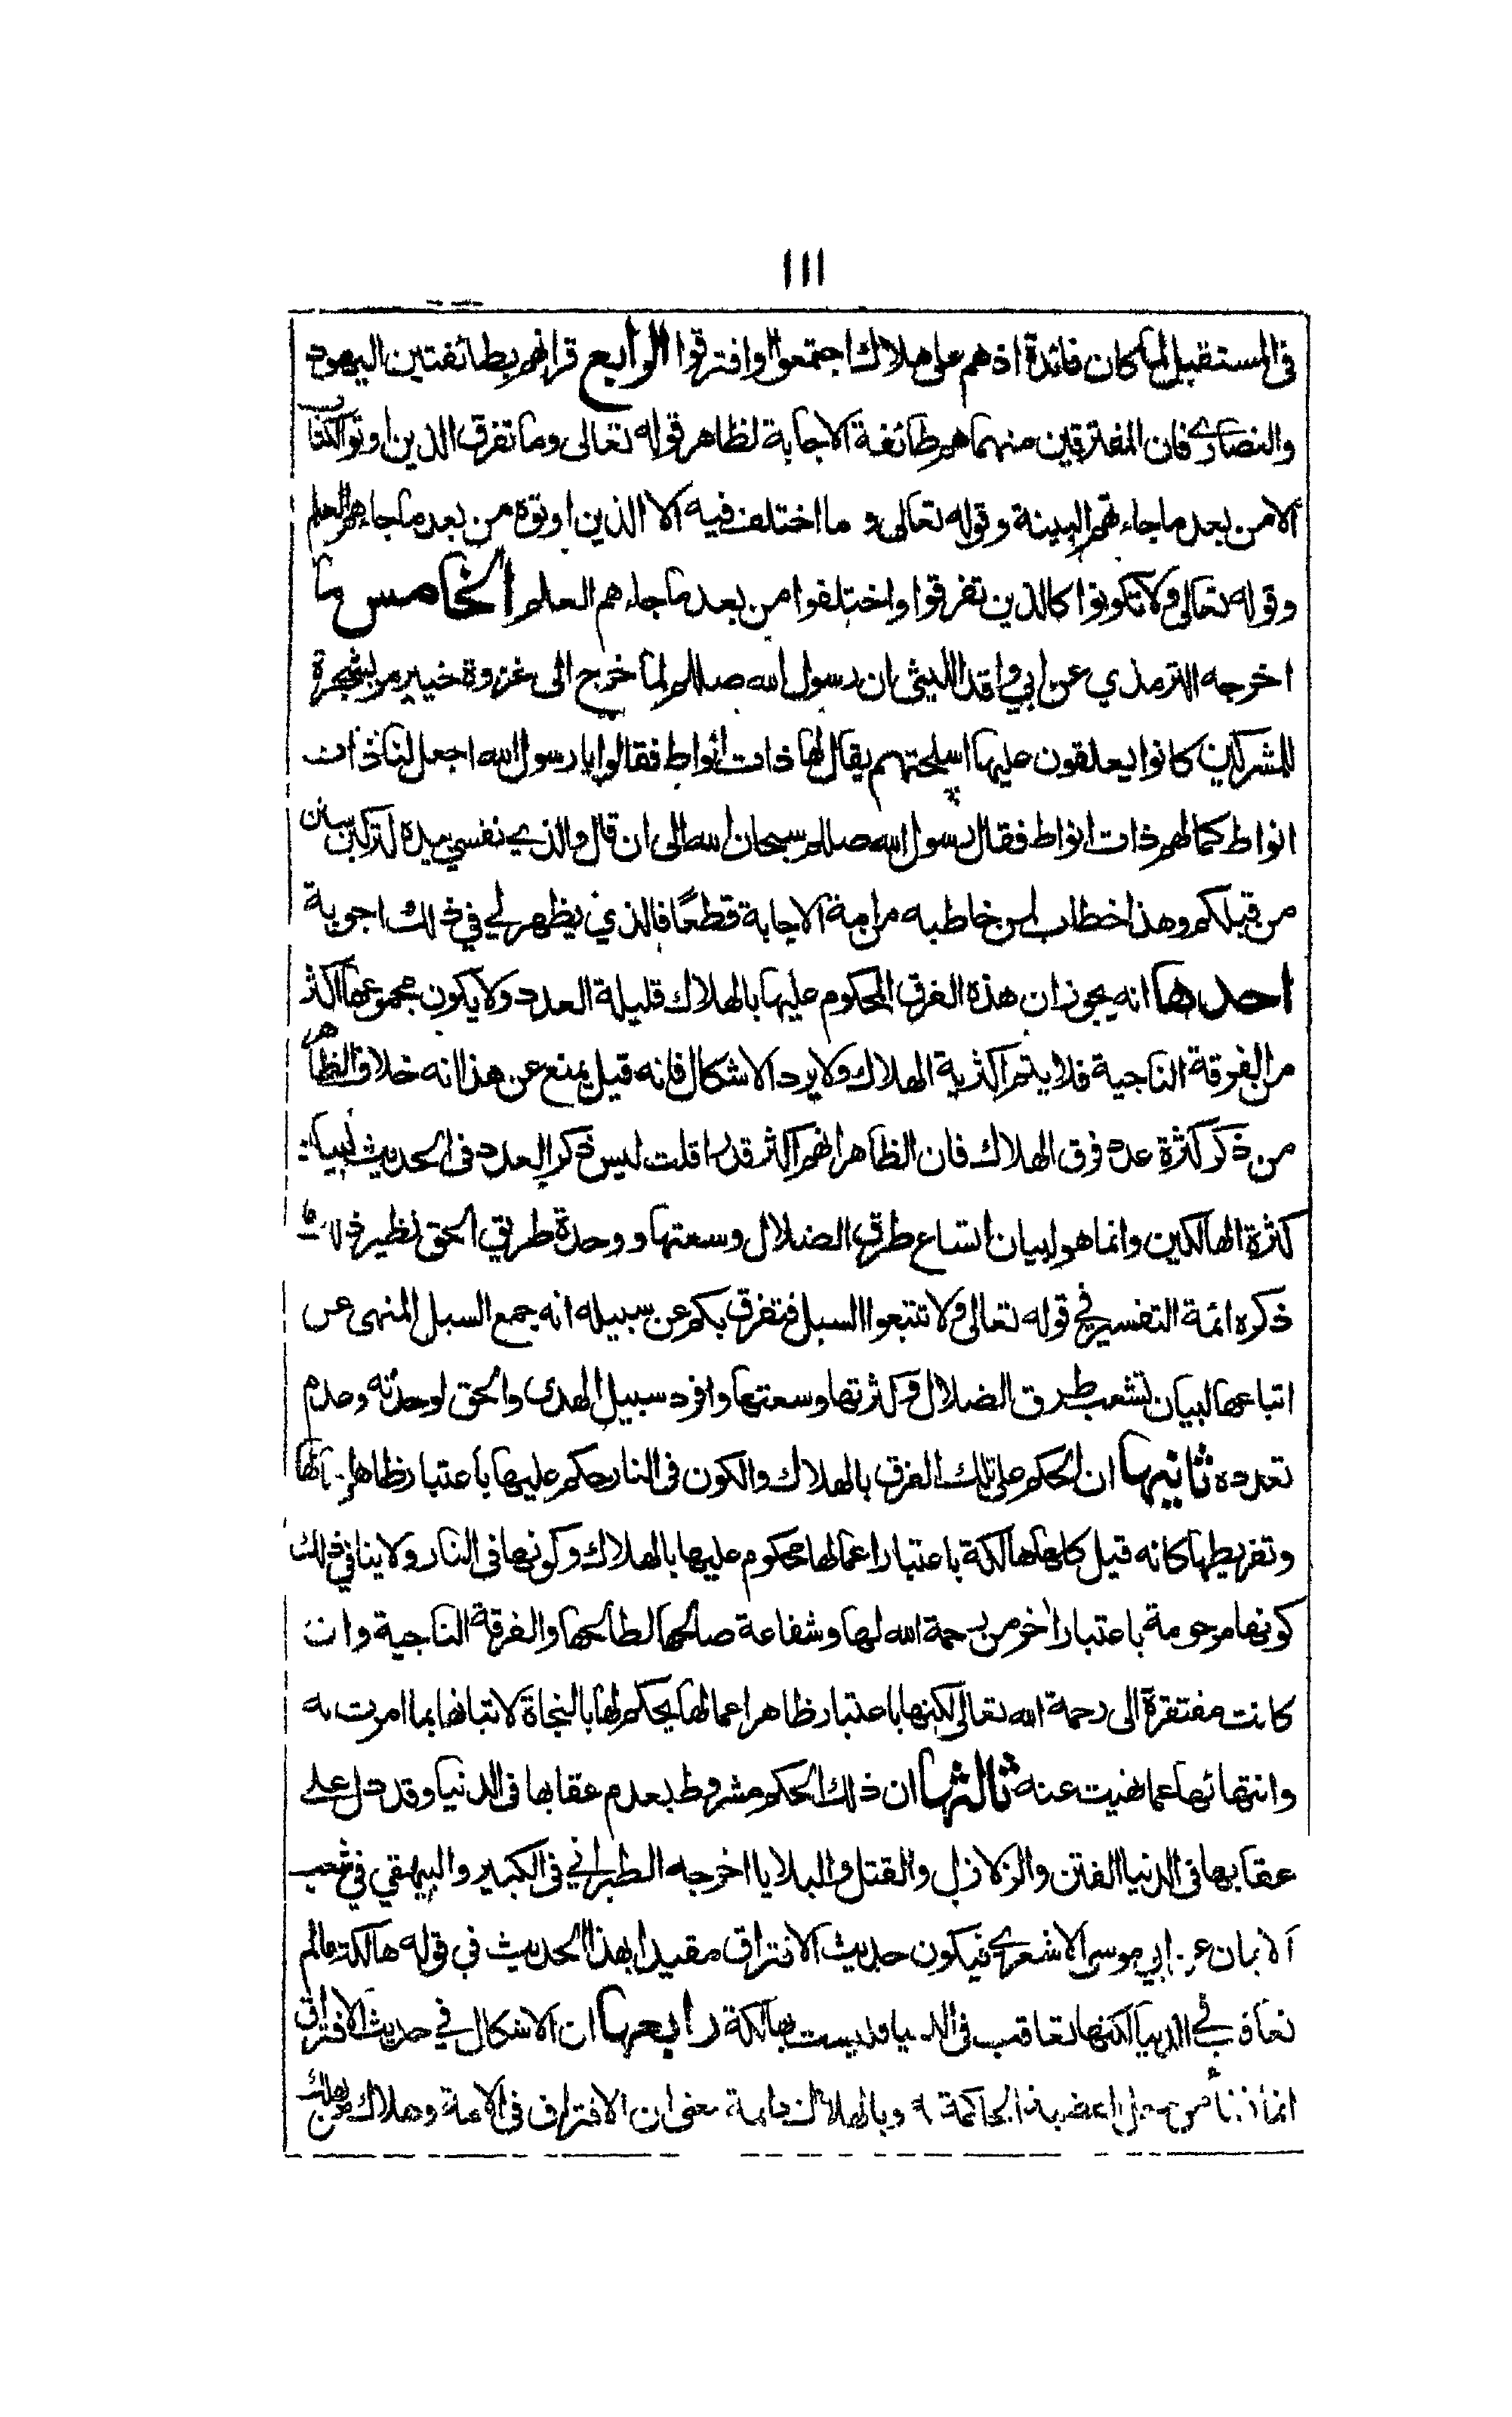 ١١١
فى المستقبل لما كان فائدة اذ هم على هلاك اجتمعوا او افترقوا الرابع قرانهم بطائفتين اليهود
والنصارى فان المفترقين منهما هم طائفة الاجابة لظاهر قوله تعالى وما تفرق الذين اوتوا الكتاب
الا من بعد ما جاءتهم البينة وقوله تعالى و ما اختلف فيه الا الذين اوتوه من بعد ما جاءهم العلم
وقوله تعالى ولا تكونوا كالذين تفرقوا واختلفوا من بعد ما جاءهم العلم الخامس ما
اخرجه الترمذي عن ابي واقد الليثى ان رسول الله صللم لما خرج الى غزوة خيبر مر بشجرة
للمشركين كانوا يعلقون عليها اسلحتهم يقال لها ذات انواط فقالوا يا رسول الله اجعل لنا ذات
انواط كما لهم ذات انواط فقال رسول الله صللم سبحان الله الى ان قال والذي نفسي بيده لتركبن سنن
من قبلكم وهذا خطاب لمن خاطبه من امة الاجابة قطعًا فالذي يظهر لي في ذلك اجوبة
احدها انه يجوز ان هذه الفرق المحكوم عليها بالهلاك قليلة العدد ولا يكون مجموعها اكثر
من الفرقة الناجية فلا يتم اكثرية الهلاك ولا يرد الاشكال فانه قيل يمنع عن هذا انه خلاف الظاهر
من ذكر كثرة عدد فرق الهلاك فان الظاهر انهم اكثر قدرا قلت ليس ذكر العدد فى الحديث لبيان
كثرة الهالكين وانما هو لبيان اتساع طرق الضلال وسعتها ووحدة طريق الحق نظير ذلك ما
ذكره ائمة التفسير في قوله تعالى ولا تتبعوا السبل فتفرق بكم عن سبيله انه جمع السبل المنهى عن
اتباعها لبيان تشعب طرق الضلال وكثرتها وسعتها وافرد سبيل الهدى والحق لوحدته وعدم
تعدده ثانيها ان الحكم على تلك الفرق بالهلاك والكون فى النار حكم عليها باعتبار ظاهر اعمالها
وتفريطها كانه قيل كلها هالكة باعتبار اعمالها محكوم عليها بالهلاك وكونها فى النار ولا ينافي ذلك
كونها مرحومة باعتبار اخر من رحمة الله لها وشفاعة صالحها لطالحها والفرقة الناجية وان
كانت مفتقرة الى رحمة الله تعالى لكنها باعتبار ظاهر اعمالها يحكم لها بالنجاة لاتيانها بما امرت به
وانتهائها عما نهيت عنه ثالثها ان ذلك الحكم مشروط بعدم عقابها فى الدنيا وقد دل على
عقابها فى الدنيا الفتن والزلازل والقتل والبلايا اخرجه الطبراني فى الكبير والبيهقي في شعب
الايمان عن ابي موسى الاشعري فيكون حديث الافتراق مقيدا بهذا الحديث في قوله هالكة مالم
تعاقب في الدنيا لكنها تعاقب فى الدنيا فليست بهالكة رابعها ان الاشكال في حديث الافتراق
انما نشأ من جعل القضية الحاكمة به وبالهلاك دايمة بمعنى ان الافتراق فى الامة وهلاك من يهلك